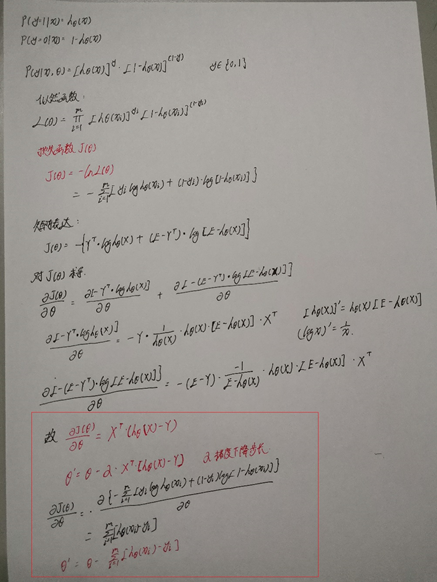 P(y=1|x)= hθ(x)
P(y=0|x)= 1-hθ(x)
P(y|x,θ) = [hθ(x)]^y · [1-hθ(x)]^(1-y) y∈{0,1}
似然函数:
L(θ) = ∏_{i=1}^m [hθ(xi)]^yi [1-hθ(xi)]^(1-yi)
损失函数 J(θ)
J(θ) = -lnL(θ)
= -∑_{i=1}^m [yi log hθ(xi) + (1-yi)·log[1-hθ(xi)]}
矩阵表达:
J(θ) = -{Y^T·log hθ(X) + (E-Y^T)·log[E-hθ(X)]}
对J(θ)求导
∂J(θ)/∂θ = ∂[-Y^T·log hθ(X)]/∂θ + ∂[-(E-Y^T)·log[E-hθ(X)]]/∂θ
∂[-Y^T·log hθ(X)]/∂θ = -Y·1/hθ(X)·hθ(X)·[E-hθ(X)]·X^T [hθ(X)]'=hθ(X)[E-hθ(X)]
(log x)'=1/x.
∂[-(E-Y^T)·log[E-hθ(X)]}/∂θ = -(E-Y)·-1/E-hθ(X)·hθ(X)·[E-hθ(X)]·X^T
故 ∂J(θ)/∂θ = X^T·(hθ(X)-Y)
θ'=θ-α·X^T[hθ(X)-Y] α 梯度下降步长
∂J(θ)/∂θ = ∂{-∑_{i=1}^m [yi log hθ(xi)+(1-yi)log[1-hθ(xi)]}/∂θ
= ∑_{i=1}^m [hθ(xi)-yi]
θ'=θ-∑_{i=1}^m [hθ(xi)-yi]